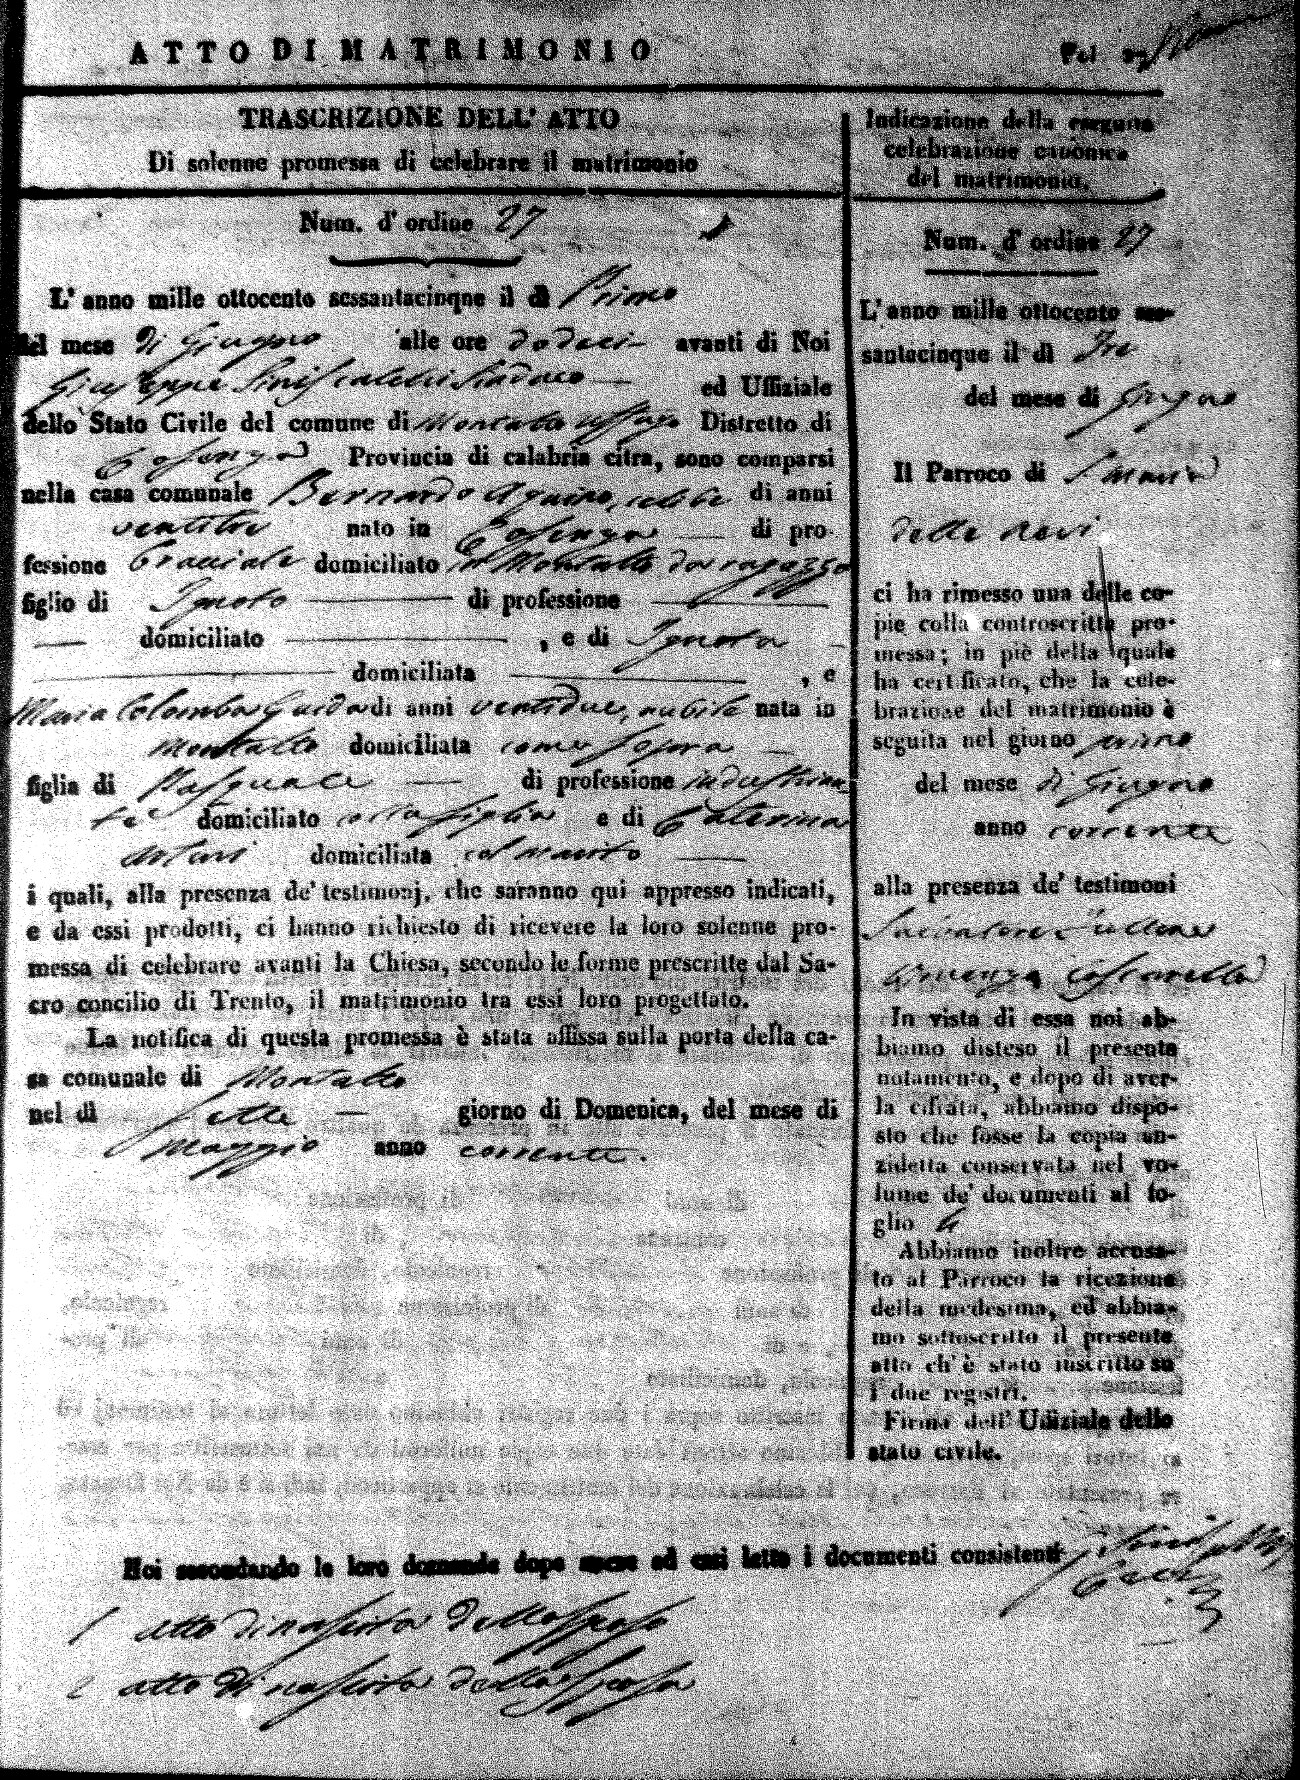 ATTO DI MATRIMONIO
Fol 27
TRASCRIZIONE DELL' ATTO
Di solenne promessa di celebrare il matrimonio
Num. d' ordine 27
L' anno mille ottocento sessantacinque il dì Primo
del mese di Giugno alle ore dodeci avanti di Noi
Giuseppe Siniscalchi Sindaco ed Uffiziale
dello Stato Civile del comune di Montalto Uffugo Distretto di
Cosenza Provincia di calabria citra, sono comparsi
nella casa comunale Bernardo Aquino, celibe di anni
ventitre nato in Cosenza di pro
fessione Bracciale domiciliato in Montalto da ragazzo
figlio di Ignoto di professione
domiciliato , e di Ignota
domiciliata , e
Maria Colomba Guido di anni ventidue, nubile nata in
Montalto domiciliata come sopra
figlia di Pasquale di professione industrian
te domiciliato colla figlia e di Caterina
domiciliata col marito
i quali, alla presenza de' testimonj, che saranno qui appresso indicati,
e da essi prodotti, ci hanno richiesto di ricevere la loro solenne pro-
messa di celebrare avanti la Chiesa, secondo le forme prescritte dal Sa-
cro concilio di Trento, il matrimonio tra essi loro progettato.
La notifica di questa promessa è stata affissa sulla porta della ca-
sa comunale di Montalto
nel dì sette giorno di Domenica, del mese di
Maggio anno corrente.
Indicazione della eseguita
celebrazione canonica
del matrimonio.
Num. d' ordine 27
L' anno mille ottocento ses-
santacinque il dì Tre
del mese di Giugno
Il Parroco di S. Maria
della Nevi
ci ha rimesso una delle co-
pie colla controscritta pro-
messa; in piè della quale
ha certificato, che la cele-
brazione del matrimonio è
seguita nel giorno primo
del mese di Giugno
anno corrente
alla presenza de' testimoni
Salvatore
Vincenzo Coscarella
In vista di essa noi ab-
biamo disteso il presente
notamento, e dopo di aver-
la cifrata, abbiamo dispo-
sto che fosse la copia an-
zidetta conservata nel vo-
lume de' documenti al fo-
glio 4
Abbiamo inoltre accusa-
to al Parroco la ricezione
della medesima, ed abbia-
mo sottoscritto il presente
atto ch' è stato inscritto su
i due registri.
Firma dell' Uffiziale dello
stato civile.
Noi secondando le loro domande dopo avere ad essi letto i documenti consistenti
1 atto di nascita dello sposo
2 atto di nascita della sposa